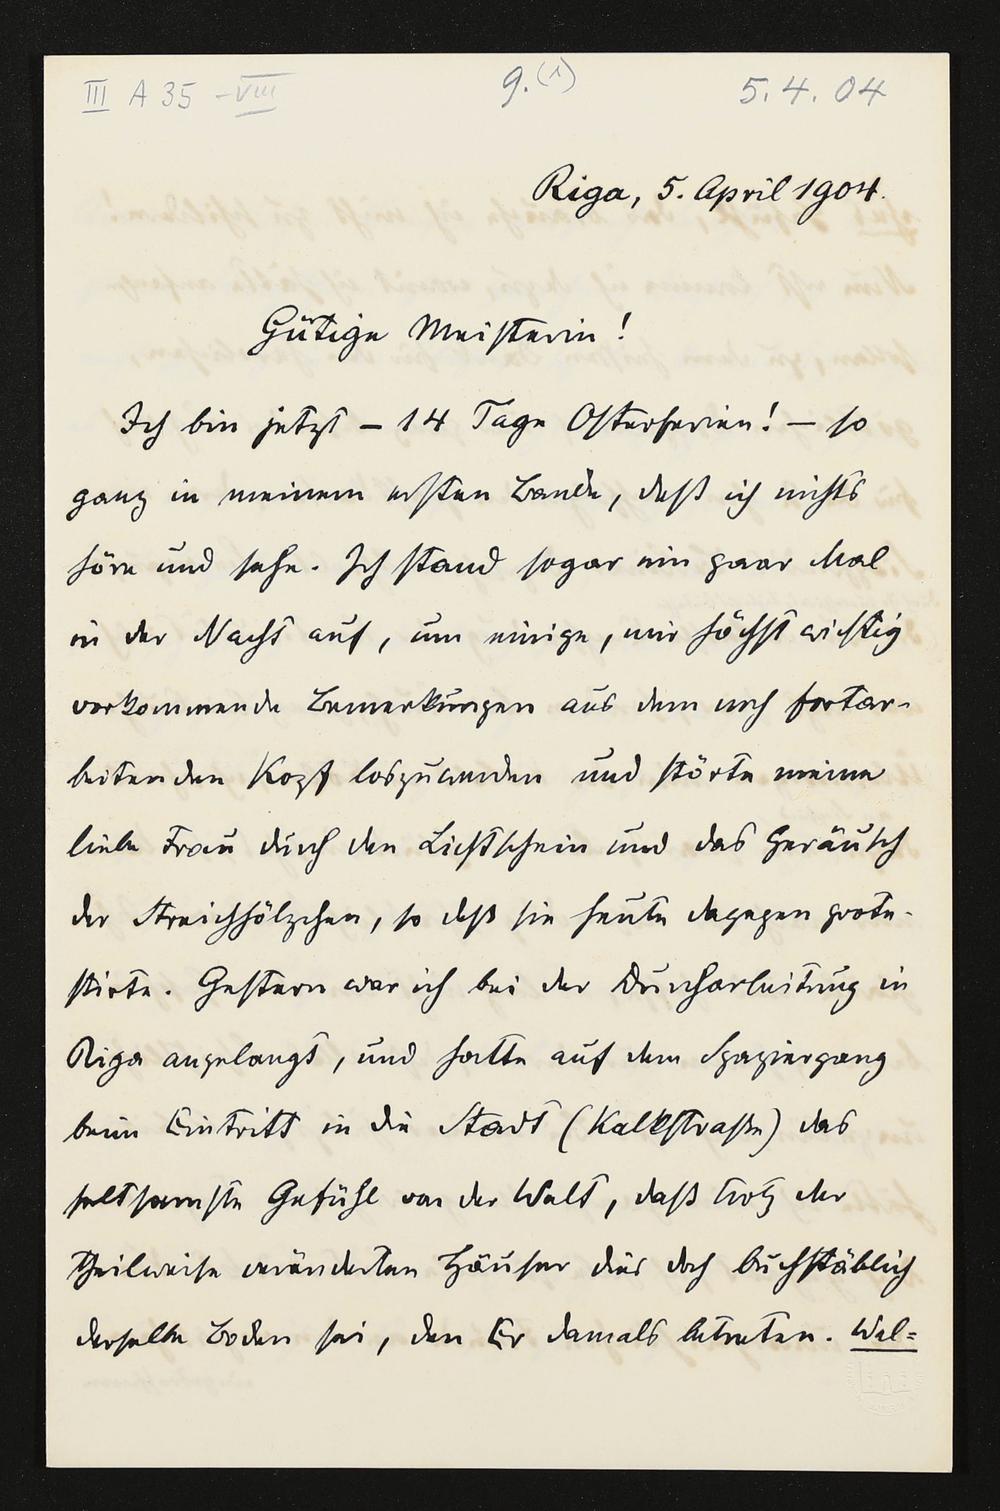 III A 35 -VIII
9.(1)
5.4.04
Riga, 5. April 1904.
Gütige Meisterin!
Ich bin jetzt – 14 Tage Osterferien! – so
ganz in meinem ersten Bande, daß ich nichts
höre und sehe. Ich stand sogar ein paar Mal
in der Nacht auf, um einige, mir höchst wichtig
vorkommende Bemerkungen aus dem noch fortar-
beitenden Kopf loszuwerden und störte meine
liebe Frau durch den Lichtschein und das Geräusch
der Streichhölzchen, so daß sie heute dagegen prote-
stirte. Gestern war ich bei der Durcharbeitung in
Riga angelangt, und hatte auf dem Spaziergang
beim Eintritt in die Stadt (Kalkstraße) das
seltsamste Gefühl von der Welt, daß trotz der
theilweise veränderten Häuser dies doch buchstäblich
derselbe Boden sei, den Er damals betreten. Wel=